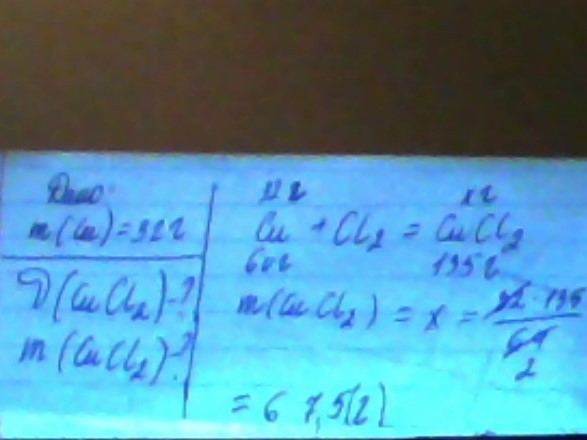 Дано:
m(Cu)=32г
ν(CuCl₂)-?
m(CuCl₂)-?
32г хг
Cu + Cl₂ = CuCl₂
64г 135г
m(CuCl₂) = x = 32·135
64
2
= 67,5(г)